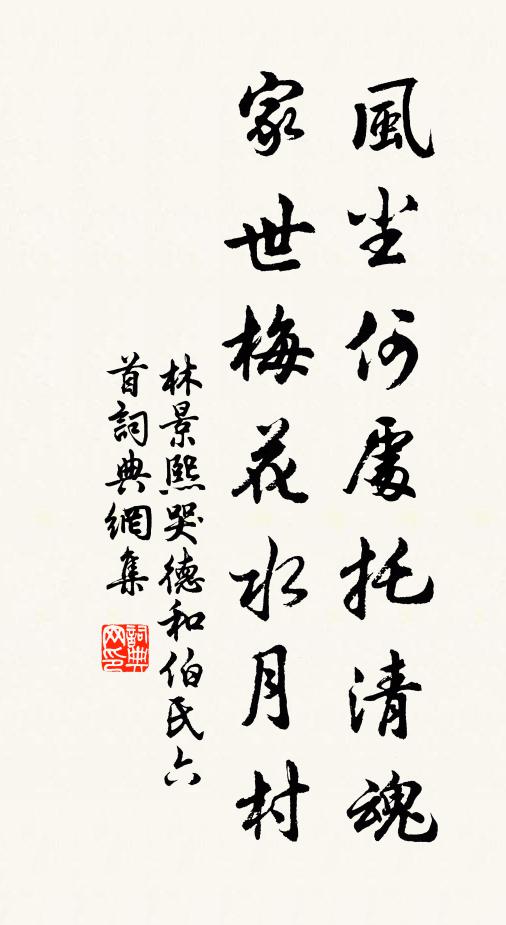 風尘何處托清魂
家世梅花水月村
林景熙哭德和伯氏六
首詞典網集
詞典
网印